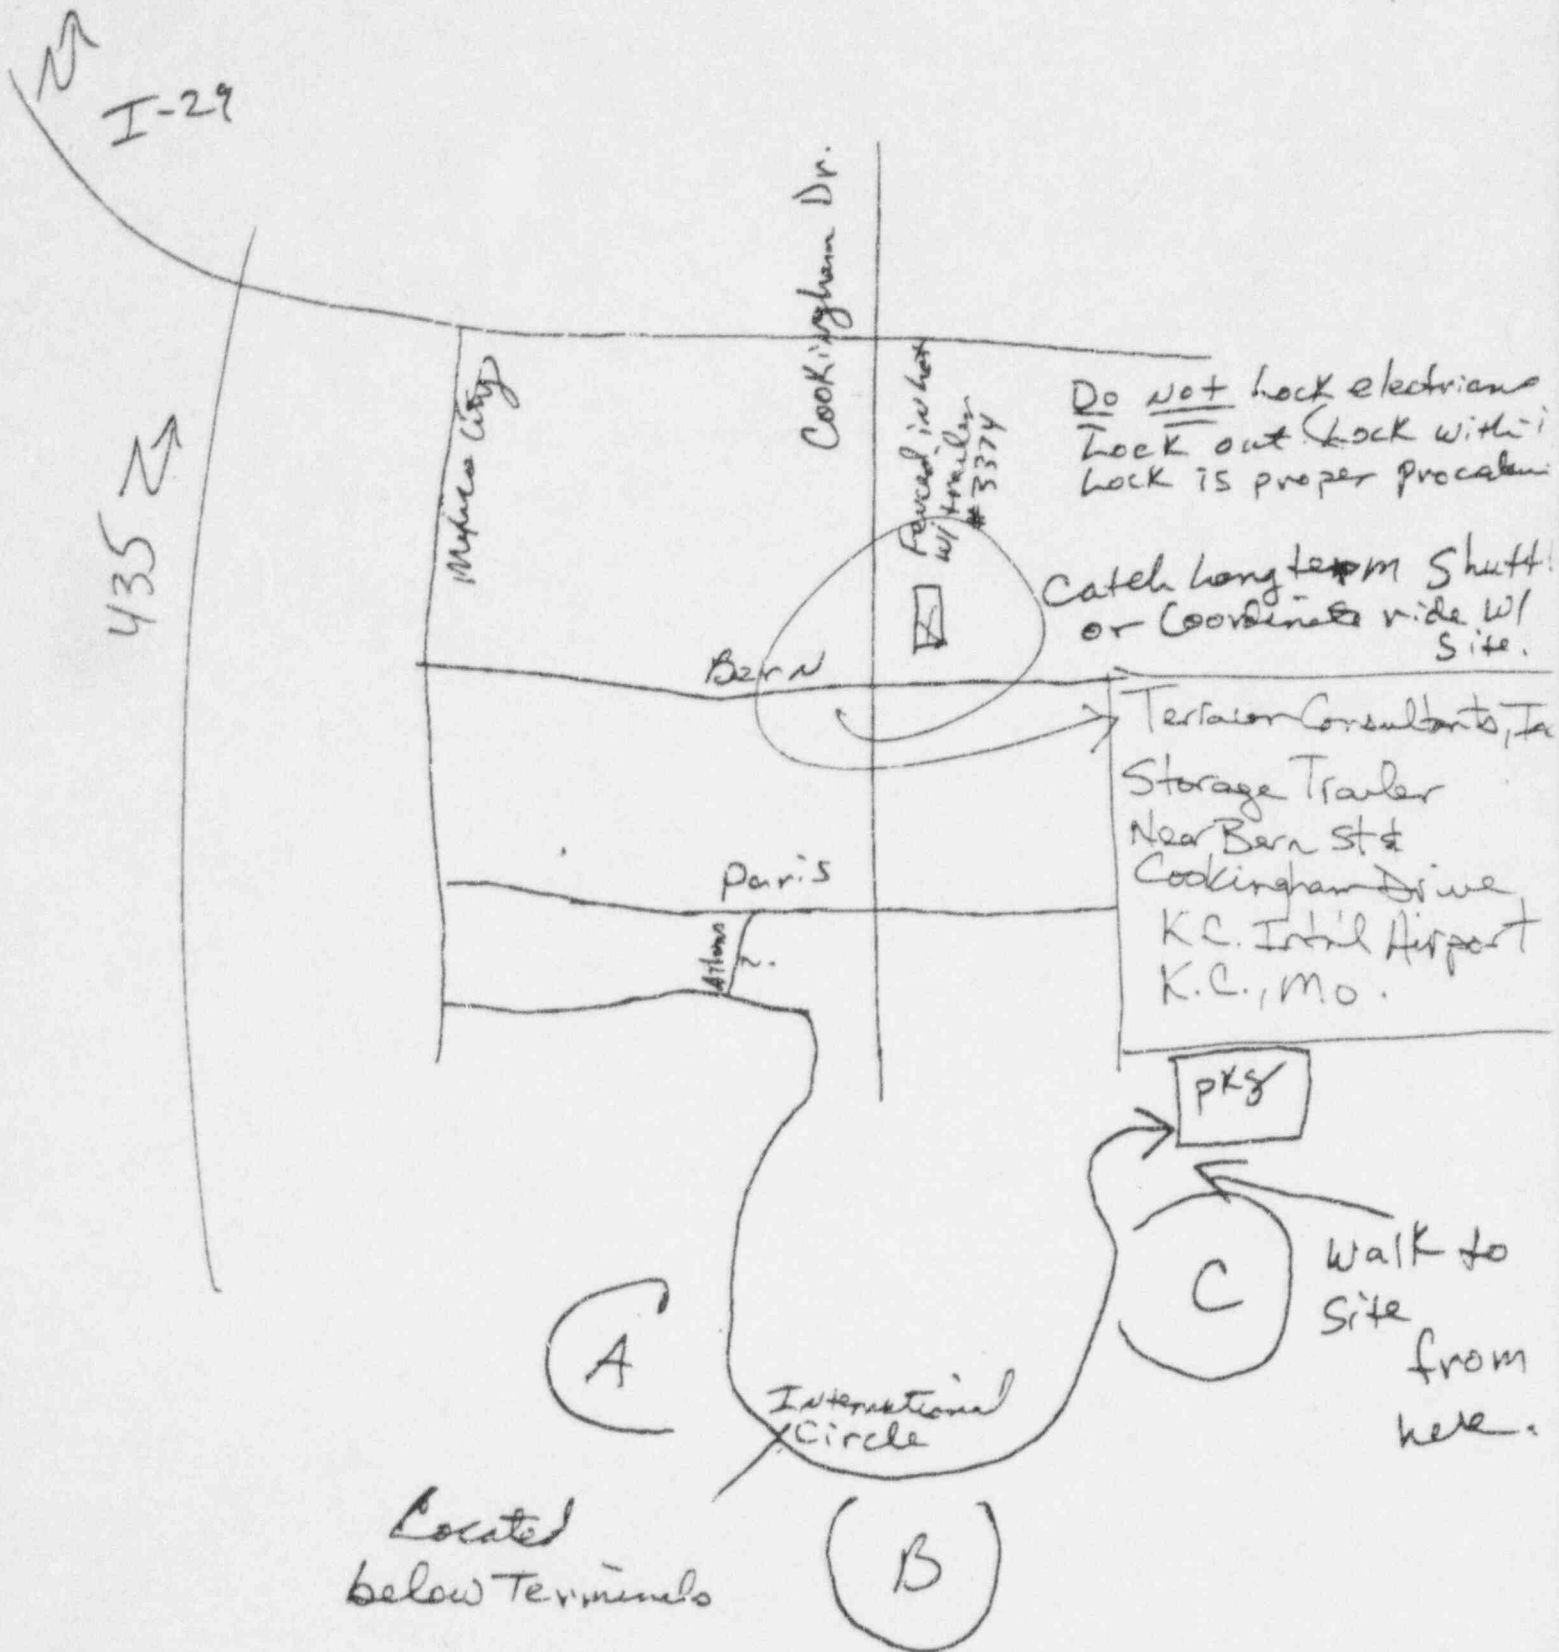 I-29
435
Mexico City
Cookingham Dr.
Fenced in Lot
w/ trailer
# 3374
Do Not Lock electricians
Lock out (Lock within
Lock is proper
Catch Long term Shutt
or Coordinate ride w/
Site.
Bern
Terracon Consultants, In
Storage Trailer
Near Bern St &
Cookingham Drive
K.C. Int'l Airport
K.C., Mo.
Paris
Athens
pkg
A
B
C
Walk to
Site
from
here.
International
Circle
Located
below Terminals